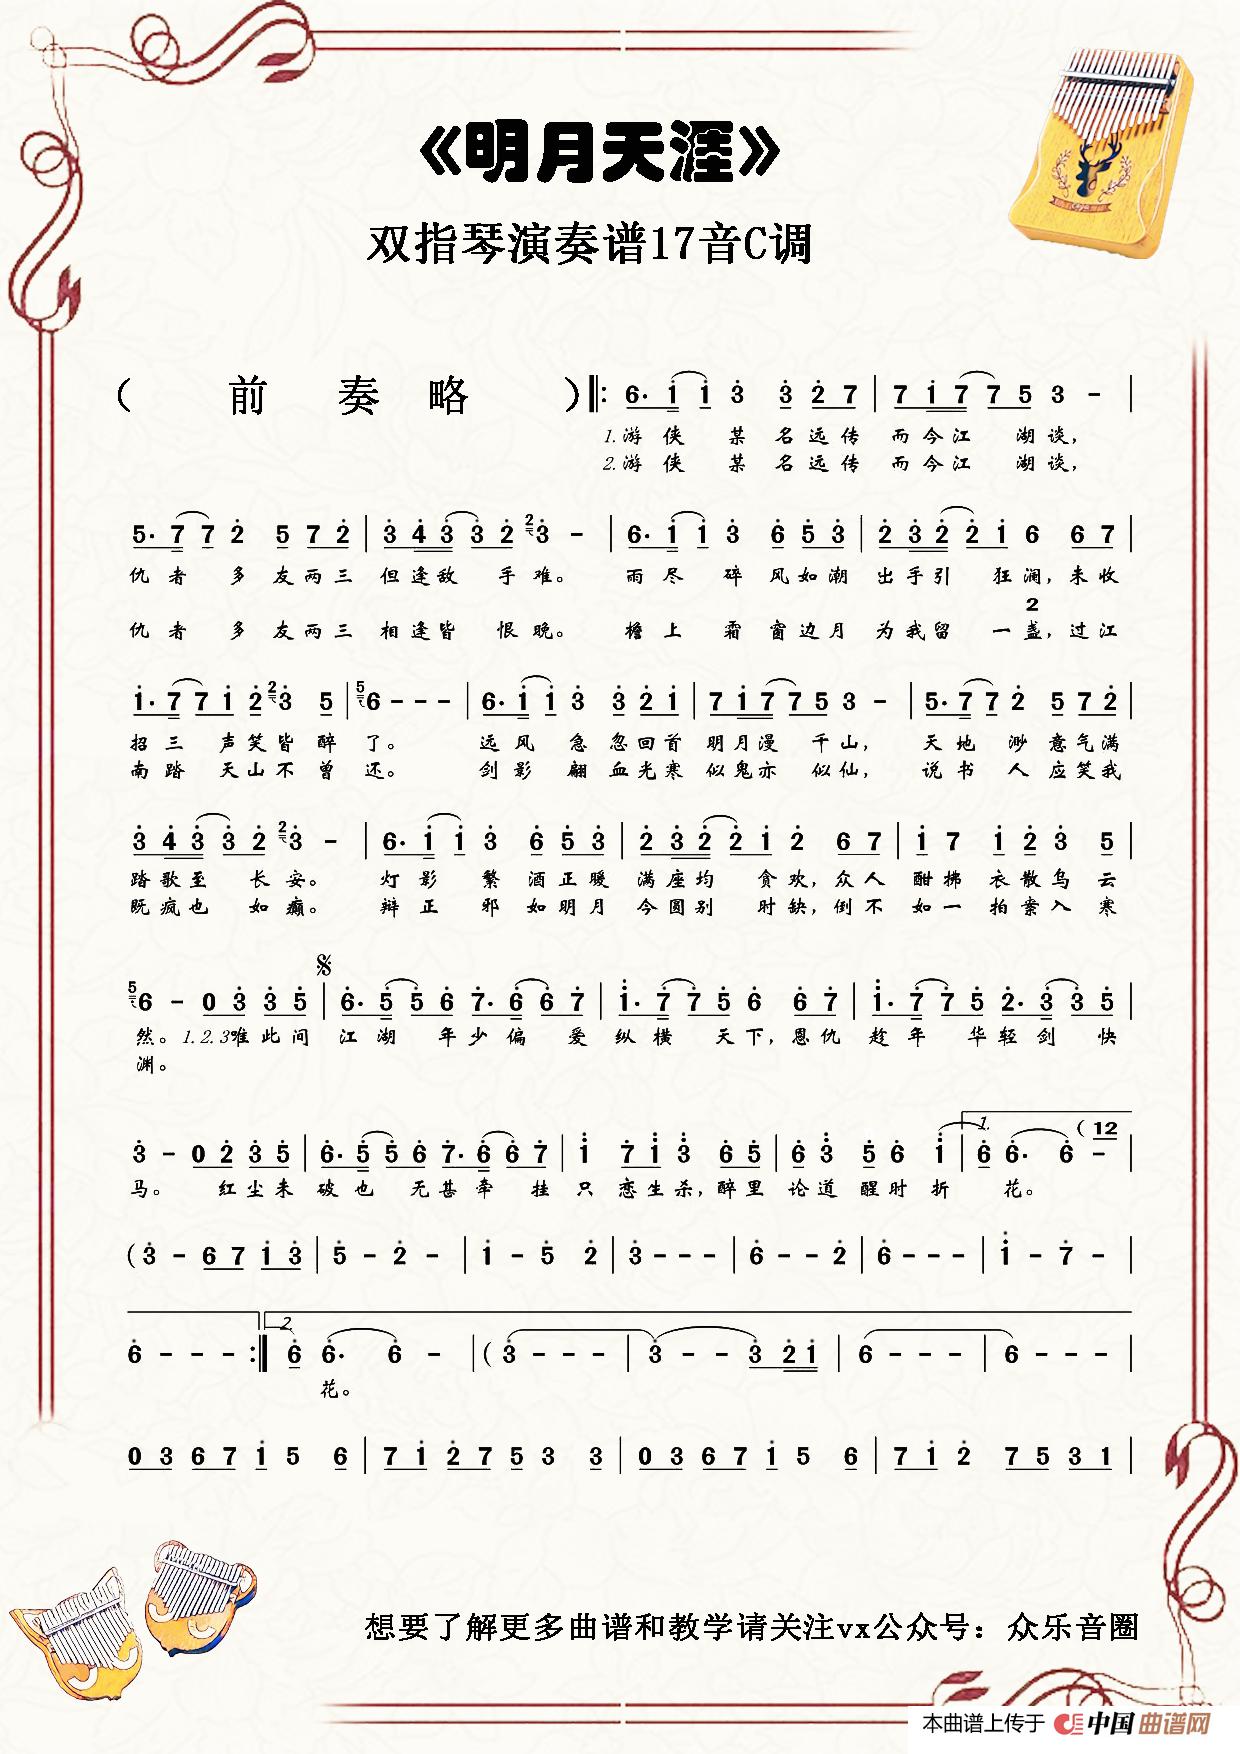 《明月天涯》
双指琴演奏谱17音C调
（ 前 奏 略 ） 6· 1 1 3 3 2 7 | 7 1 7 7 5 3 - |
1.游 侠 某 名 远 传 而 今 江 湖 谈，
2.游 侠 某 名 远 传 而 今 江 湖 谈，
5· 7 7 2 5 7 2 | 3 4 3 3 2 2 3 - | 6· 1 1 3 6 5 3 | 2 3 2 2 1 6 6 7 |
仇 者 多 友 两 三 但 逢 敌 手 难。 雨 尽 碎 风 如 潮 出 手 引 狂 澜，未 收
2
仇 者 多 友 两 三 相 逢 皆 恨 晚。 檐 上 霜 窗 边 月 为 我 留 一 盏，过 江
1· 7 7 1 2 2 3 5 | 5 6 - - - | 6· 1 1 3 3 2 1 | 7 1 7 7 5 3 - | 5· 7 7 2 5 7 2 |
招 三 声 笑 皆 醉 了。 远 风 急 忽 回 首 明 月 漫 千 山， 天 地 渺 意 气 满
南 踏 天 山 不 曾 还。 剑 影 翩 血 光 寒 似 鬼 亦 似 仙， 说 书 人 应 笑 我
3 4 3 3 2 2 3 - | 6· 1 1 3 6 5 3 | 2 3 2 2 1 2 6 7 | 1 7 1 2 3 5 |
踏 歌 至 长 安。 灯 影 繁 酒 正 暖 满 座 均 贪 欢，众 人 酣 拂 衣 散 乌 云
既 疯 也 如 癫。 辩 正 邪 如 明 月 今 圆 别 时 缺，倒 不 如 一 拍 案 入 寒
5 6 - 0 3 3 5 | 6· 5 5 6 7· 6 6 7 | 1· 7 7 5 6 6 7 | 1· 7 7 5 2· 3 3 5 |
然。1.2.3唯 此 间 江 湖 年 少 偏 爱 纵 横 天 下，恩 仇 趁 年 华 轻 剑 快
渊。
1.
3 - 0 2 3 5 | 6· 5 5 6 7· 6 6 7 | 1 7 1 3 6 5 | 6 3 5 6 1 | 6 6· 6 - （12
马。 红 尘 未 破 也 无 甚 牵 挂 只 恋 生 杀，醉 里 论 道 醒 时 折 花。
（3 - 6 7 1 3 | 5 - 2 - | 1 - 5 2 | 3 - - - | 6 - - 2 | 6 - - - | 1 - 7 - |
2.
6 - - - :| 6 6· 6 - |（3 - - - | 3 - - 3 2 1 | 6 - - - | 6 - - - |
花。
0 3 6 7 1 5 6 | 7 1 2 7 5 3 3 | 0 3 6 7 1 5 6 | 7 1 2 7 5 3 1 |
想要了解更多曲谱和教学请关注vx公众号：众乐音圈
本曲谱上传于 中国曲谱网